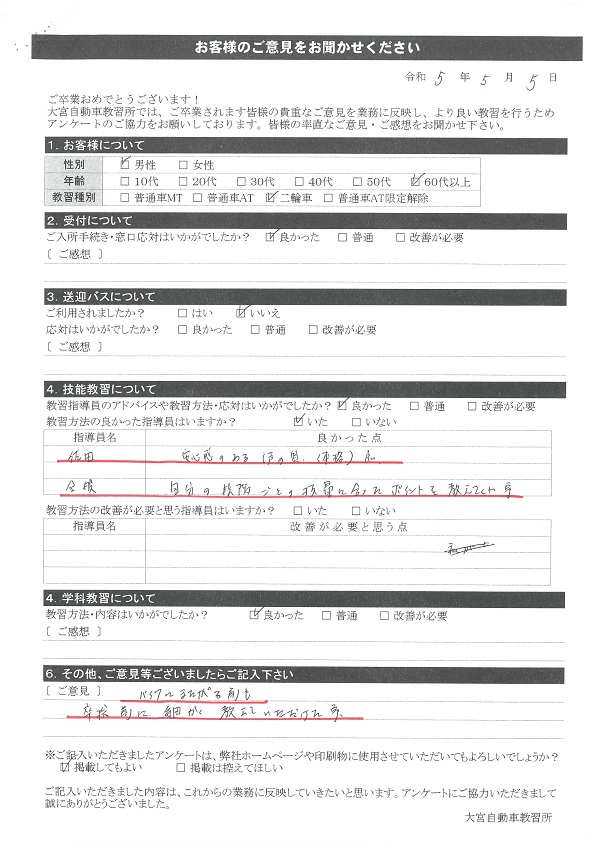 お客様のご意見をお聞かせください
令和 5 年 5 月 5 日
ご卒業おめでとうございます！
大宮自動車教習所では、ご卒業されます皆様の貴重なご意見を業務に反映し、より良い教習を行うため
アンケートのご協力をお願いしております。皆様の率直なご意見・ご感想をお聞かせ下さい。
1. お客様について
性別 ☑男性 □女性
年齢 □10代 □20代 □30代 □40代 □50代 ☑60代以上
教習種別 □普通車MT □普通車AT ☑二輪車 □普通車AT限定解除
2. 受付について
ご入所手続き・窓口応対はいかがでしたか？ ☑良かった □普通 □改善が必要
〔 ご感想 〕
3. 送迎バスについて
ご利用されましたか？ □はい ☑いいえ
応対はいかがでしたか？ □良かった □普通 □改善が必要
〔 ご感想 〕
4. 技能教習について
教習指導員のアドバイスや教習方法・応対はいかがでしたか？ ☑良かった □普通 □改善が必要
教習方法の良かった指導員はいますか？ ☑いた □いない
指導員名 良かった点
安心感のある
全様 自分の技術ごとの ポイントを教えてくれ事
教習方法の改善が必要と思う指導員はいますか？ □いた □いない
指導員名 改善が必要と思う点
4. 学科教習について
教習方法・内容はいかがでしたか？ ☑良かった □普通 □改善が必要
〔 ご感想 〕
6. その他、ご意見等ございましたらご記入下さい
〔 ご意見 〕 バイクにまたがる前も
卒検前に細かく教えていただけた事
※ご記入いただきましたアンケートは、弊社ホームページや印刷物に使用させていただいてもよろしいでしょうか？
☑掲載してもよい □掲載は控えてほしい
ご記入いただきました内容は、これからの業務に反映していきたいと思います。アンケートにご協力いただきまして
誠にありがとうございました。
大宮自動車教習所